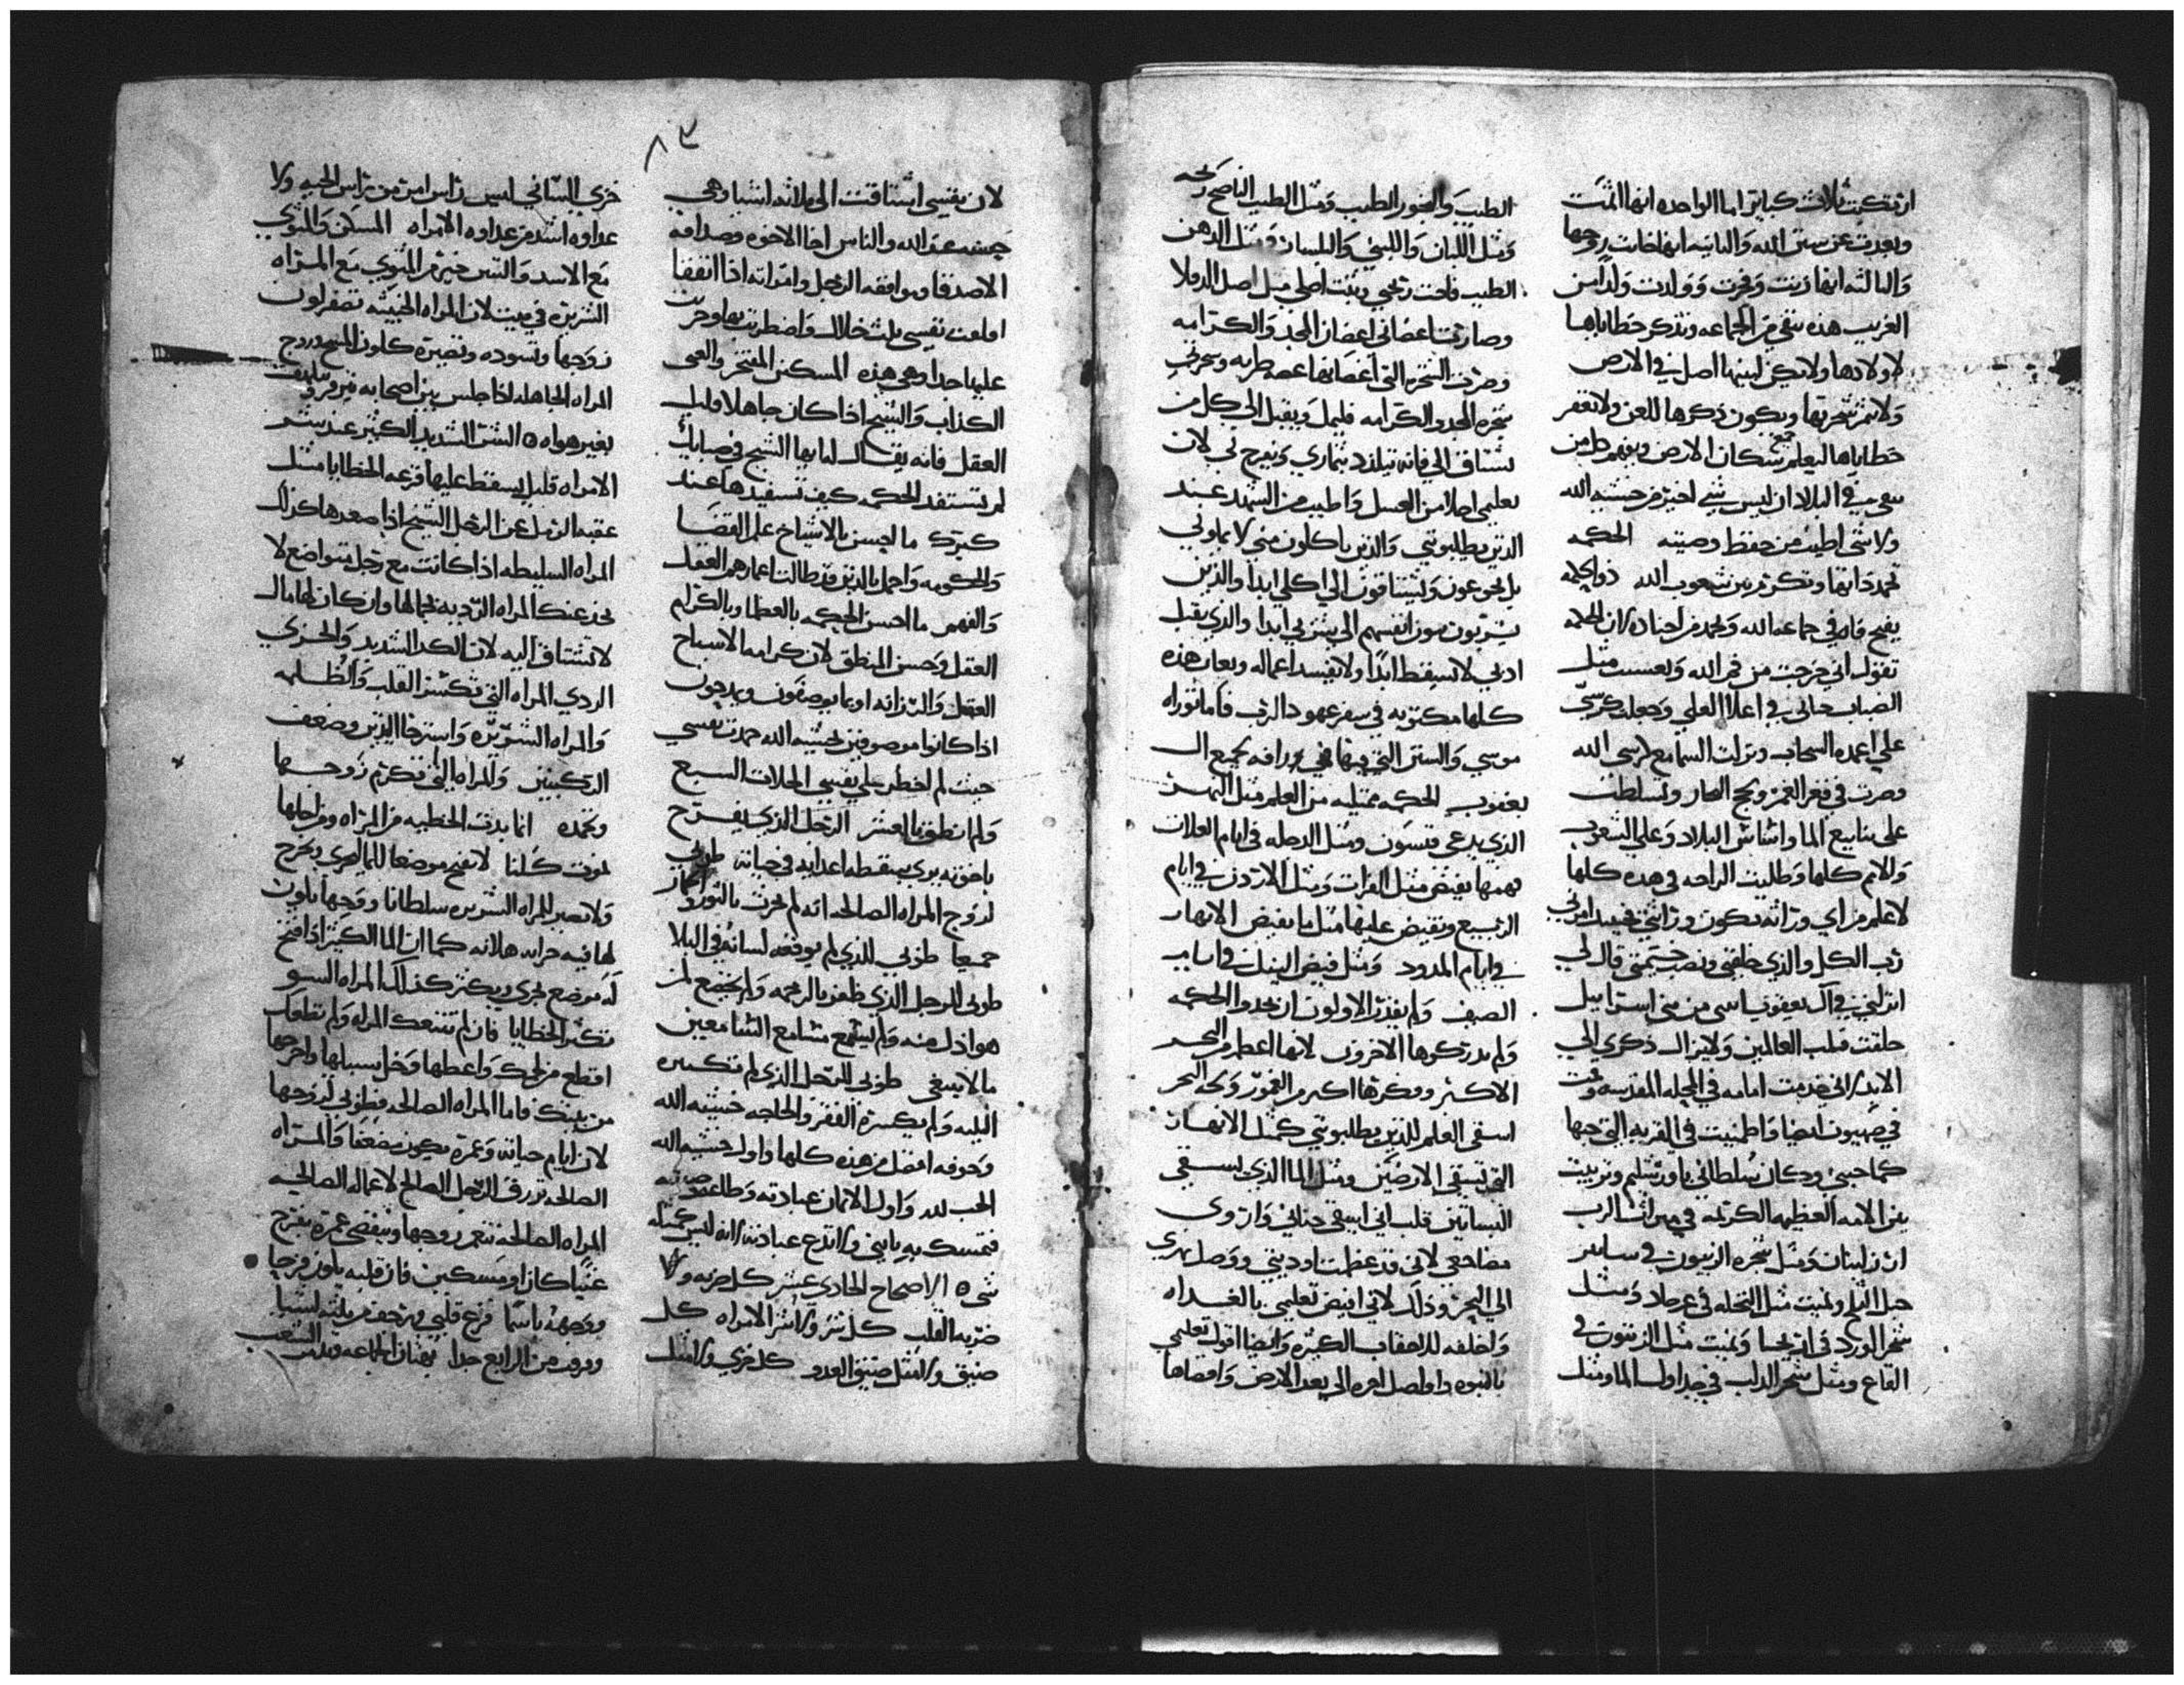 ارتكبت ثلاث كباير اما الواحده انها اثمت
وبعدت عن سنن الله والثانيه انها خانت زوجها
والثالثه انها زنت وفجرت وولدت ولدا من
الغريب هذه تنفى من الجماعه وتذكر خطاياها
لاولادها ولا يكن لبنيها اصل في الارض
ولا تثمر شجرتها ويكون ذكرها للعن ولا تغفر
خطاياها ليعلم جميع سكان الارض ويفهم كل من
بقي في البلاد ان ليس شي اخير من خشيه الله
ولا شي اطيب من حفظ وصيته الحكمه
تحمد ذاتها وتكرم بين شعوب الله
يفتح فاه في جماعه الله وتحمد من اجناده لان الحكمه
تقول اني خرجت من فم الله وبعست مثل
الضباب حالي في اعلا العلي وجعلت كرسيي
علي اعمده السحاب ونزلت السما مع كرسي الله
وصرت في قعر الغمر ولجج البحار وتسلطت
على ينابيع الما واساس البلاد وعلى الشعوب
والامم كلها وطالبت الراحه في هذه كلها
لاعلم من اي وراثه تكون وراثتي فحينيذ امرني
رب الكل والذي خلقني ونصب خيمتي قال لي
انزلي في ال يعقوب من بني اسراييل
خلقت قبل العالمين ولا يزال ذكري الي
الابد لاني خدمت امامه في المحله المقدسه وقمت
في صهيون ايضا واطمنيت في القريه التي حبها
كما حبني وكان سلطاني باورشليم وتربيت
بين الامه العظيمه الكريمه في ميراث الرب
ارز لبنان ومثل شجره الزيتون في سانير
جبل الثلج ونميت مثل النخله في عين جاد ومثل
شجر الورد في اريحا ونميت مثل الزيتون في
القاع ومثل شجر الدلب في جداول الما ومثل
الطيب والبخور الطيب ومثل الطيب الناضج ريحه
ومثل اللبان واللبني والبلسان ومثل الدهن
الطيب فاحت ريحي وبنت اصلي مثل اصل الدفلا
وصارت اغصاني اغصان المجد والكرامه
وصرت الشجره التي اغصانها غضه طريه وشجرتي
شجره المجد والكرامه فليمل ويقبل الي كل من
يشتاق الي فانه يتلذذ بثماري ويفرح بي لان
تعليمي احلا من العسل واطيب من الشهد عند
الذين يطلبونني والذين ياكلون مني لا
بل يجوعون ويشتاقون الي اكلي ابدا والذين
يشربون انفسهم الي شربي ابدا والذي يقبل
ادبي لا يسقط ابدا ولا يفسد اعماله هذه
كلها مكتوبه في سفر عهود الرب فاما توراه
موسي والسنن التي فيها هي وراثه لجميع ال
يعقوب الحكمه ممتليه من العلم مثل النهر
الذي يدعى فيسون ومثل الدجله في ايام الغلات
فهمها يفيض مثل الفرات ومثل الاردن في ايام
الربيع وتفيض عليها مثل ما يفيض الانهار
في ايام المدود ومثل فيض النيل في ايام
الصيف ولم يقدر الاولون ان يجدوا الحكمه
ولم يدركوها الاخرون لانها اعظم من البحر
الاكبر وفكرها اكرم من الغمور ولجه البحر
اسقي العلم للذين يطلبونني كمثل الانهار
التي تسقي الارضين ومثل الما الذي يسقي
البساتين قلت اني اسقي جناني واروي
مضاجعي لاني قد عظمت اوديتي ووصل نهري
الي البحر وذلك لاني افيض تعليمي بالغداه
واخلفه للاحقاب الكثيره وايضا اقول تعليمي
بالنبوه واواصل اخره الي بعد الارض واقصاها
٨٣
لان نفسي اشتاقت الى ثلاثه اشيا وهي
حسنه عند الله والناس اخا الاخوه وصداقه
الاصدقا وموافقه الرجل وامراته اذا اتفقا
نفسي ثلث خلال واضطربت
عليها جدا وهي هذه المسكين المفتخر والغني
الكذاب والشيخ اذا كان جاهلا وقليل
العقل فانه يقال له ايها الشيخ في صبايك
لم تستفد الحكمه كيف تستفيدها عند
كبرك ما احسن بالاشياخ علم القضا
والحكومه واجمل بالذين قد طالت اعمارهم العقل
والفهم ما احسن الحكمه بالعظما وبالكرام
العقل وحسن المنطق لان كرامه الاشياخ
العقل والرزانه يوصفون ويمدحون
اذا كانوا موصوفين بخشيه الله حمدت نفسي
حيث لم اخطر على نفسي الخلات السبع
ولم انطق بالعشر الرجل الذي يفرح
باخوته يري سقطه اعدايه في حياته طوبي
لزوج المراه الصالحه انه لم يحرث بالثور والحمار
جميعا طوبي للذي لم يوقعه لسانه في البلا
طوبي للرجل الذي ظفر بالرحمه ولم يخضع لمن
هو اذل منه ولم يسمع مسامع السامعين
ما لا ينبغي طوبي للرجل الذي لم تكسره
البليه ولم يكسره الفقر والحاجه خشيه الله
وخوفه افضل من هذه كلها واول خشيه الله
الحب لله واول الايمان عبادته وطاعته
فتمسك به يا بني ولا تدع عبادته لانه ليس كمثله
شي ۞ الاصحاح الحادي عشر كل حزنه ولا
ضربه القلب كل شر ولا شر الامراه كل
ضيق ولا مثل ضيق العدو كل خزي ولا مثل
خزي الشاني ليس راس امر من راس الحيه ولا
عداوه اشد من عداوه الامراه المسكن والثوي
مع الاسد والتنين خير من الثوي مع المراه
الشريره في بيت لان المراه الخبيثه تصفر لون
زوجها وتسوده وتصيره كلون المسح زوج
المراه الجاهله اذا جلس بين اصحابه
بغير هواه ۞ الشر الشديد الكثير عند شر
الامراه قليل يسقط عليها قرعه الخطايا مثل
عقبه الرمل عن الرجل الشيخ اذا صعدها كذلك
المراه السليطه اذا كانت مع رجل متواضع لا
تخدعنك المراه الرديه بجمالها وان كان لها مال
لا تشتاق اليه لان الكد الشديد والخزي
الردي المراه التي تكسر القلب والظلمه
والمراه الشريره واسترخا اليدين وضعف
الركبتين والمراه التي تكرم زوجها
وتحمده انما بدت الخطيه من المراه ومن اجلها
نموت كلنا لا تفتح موضعا للما ليجري ويخرج
ولا تصير للمراه الشريره سلطانا
لانه كما ان الما الكثير اذا افتتح
له موضع يجري ويكثر كذلك المراه السو
تكثر الخطايا فان لم تتبعك المراه ولم تطعك
اقطع من لحمك واعطها وخل سبيلها واخرجها
من بيتك فاما المراه الصالحه فطوبي لزوجها
لان ايام حياته وعمره يكون مضعفا والمراه
الصالحه ترزق الرجل الصالح لاعماله الصالحه
المراه الصالحه تنعم زوجها وينقضي عمره بفرح
غنيا كان او مسكين فان قلبه يكون فرحا
ووجهه باسما فزع قلبي ورجف من ثلثه اشيا
وفرقت من الرابع جدا الجماعه الشعب